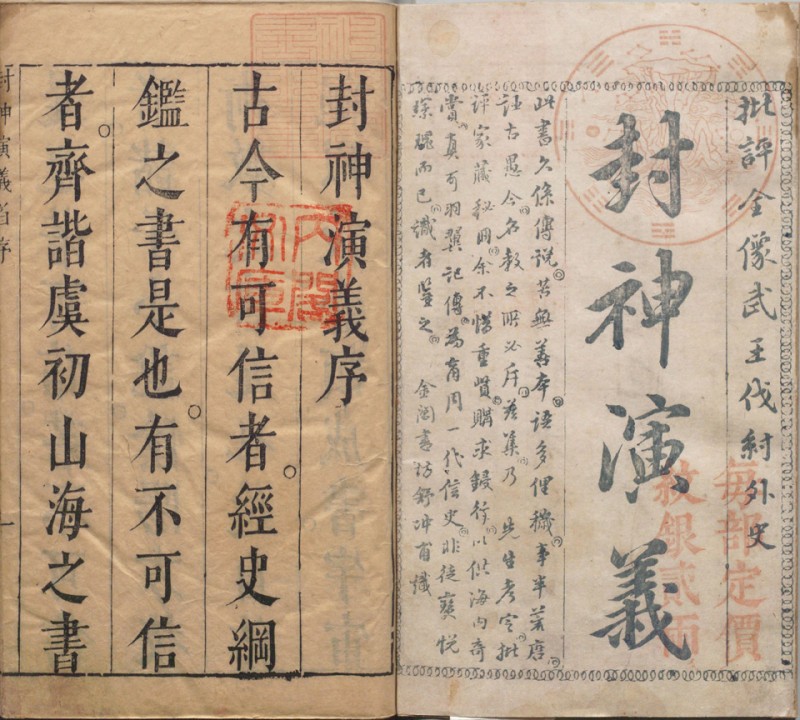 批評全像武王伐紂外史
封神演義
每部定價
紋銀貳兩
此書久係傳說。苦無善本。語多俚穢。事半荒唐。
誣古愚今。名教之所必斥。茲集乃 先生考定。批
評家藏秘冊。余不惜重貲。購求鋟行。以供海內奇
賞。真可羽翼記傳。為商周一代信史。非徒寶悅
琛瑰而已。識者鑒之。 金閶書坊舒冲甫識
封神演義序
古今有可信者。經史綱
鑑之書是也。有不可信
者。齊諧虞初山海之書
內閣文庫
封神演義 序 一